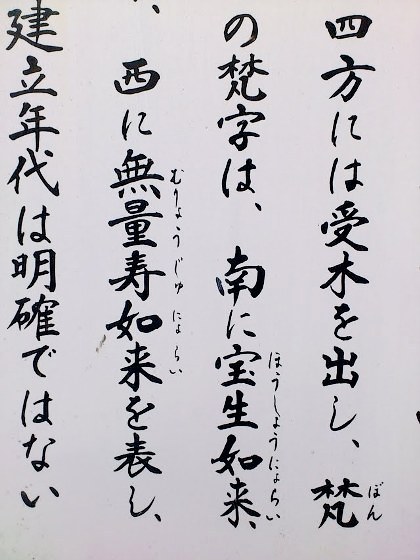 四方には受木を出し、梵
の梵字は、南に宝生如来、
、西に無量寿如来を表し、
建立年代は明確ではない
ぼん
ほうしょうにょらい
むりょうじゅにょらい